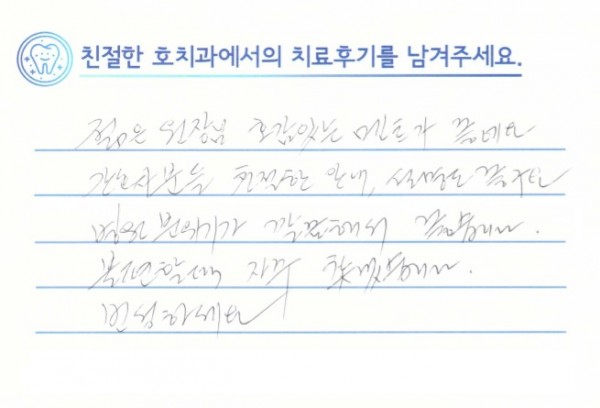 친절한 호치과에서의 치료후기를 남겨주세요.
젊은 원장님 호감있는 멘트가 좋네요
간호사분들 친절한 안내, 설명도 좋구요
병원 분위기가 깔끔해서 좋습니다.
불편할때 자주 찾겠습니다.
번성하세요